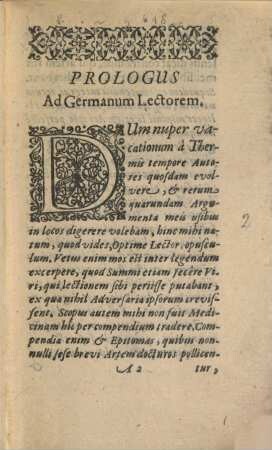 PROLOGUS
Ad Germanum Lectorem.
DUm nuper va
cationum à Ther
mis tempore Auto
res quosdam evol
vere, & rerum
quarundam Argu
menta meis usibus
in locos digerere volebam, hinc mihi na
tum, quod vides, Optime Lector, opuscu
lum. Vetus enim mos est inter legendum
excerpere, quod Summi etiam fecêre Vi
ri, qui lectionem sibi periisse putabant,
ex qua nihil Adversaria ipsorum crevis
sent. Scopus autem mihi non fuit Medi
cinam hîc per compendium tradere. Com
pendia enim & Epitomas, quibus non
nulli sese brevi Artem docturos pollicen-
A 2 tur,
2